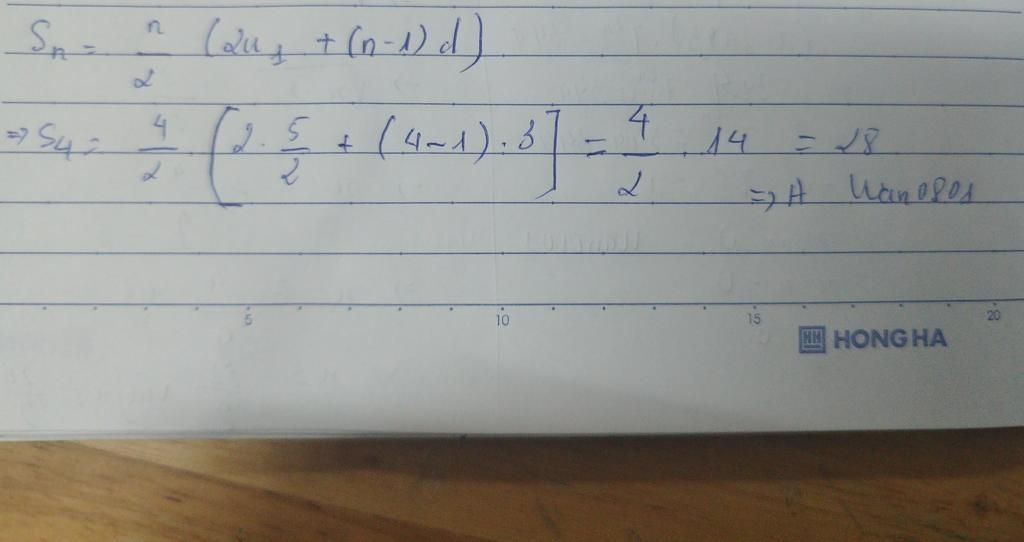 Sn = n/2 (2u1 + (n-1) d)
=> S4 = 4/2 . [2 . 5/2 + (4-1) . 3] = 4/2 . 14 = 28
=> A Uan0801
5 10 15 20
HH HONG HA